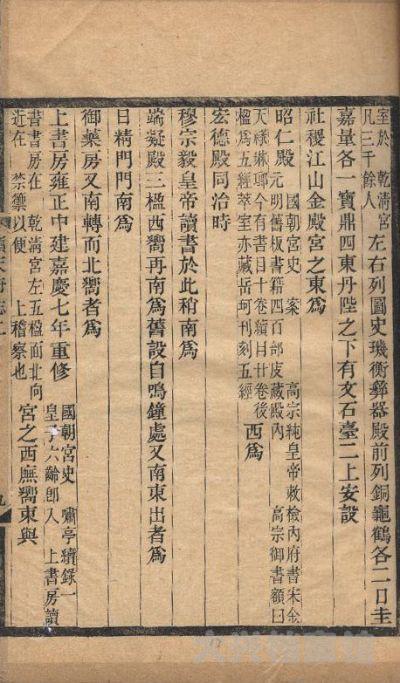 室於　乾清宮
凡三千餘人
左右列圖史璣衡彝器殿前列銅龜鶴各二日圭
嘉量各一寶鼎四東丹陛之下有文石臺二上安設
社稷江山金殿宮之東爲
昭仁殿
國朝宮史　案　高宗純皇帝敕檢內府書宋金
元明舊板書籍四百部庋藏殿內　高宗御書額曰
天祿琳瑯今有書目十卷續目廿卷後
楹爲五經萃室亦藏岳珂刊刻五經
西爲
宏德殿同治時
穆宗毅皇帝讀書於此稍南爲
端凝殿三楹西嚮再南爲舊設自鳴鐘處又南東出者爲
日精門門南爲
御藥房又南轉而北嚮者爲
上書房雍正中建嘉慶七年重修
國朝宮史　嘯亭續錄一
皇子六齡即入　上書房讀
書書房在　乾清宮左五楹面北向
近在　禁籞以便　上稽察也
宮之西廡嚮東與
九